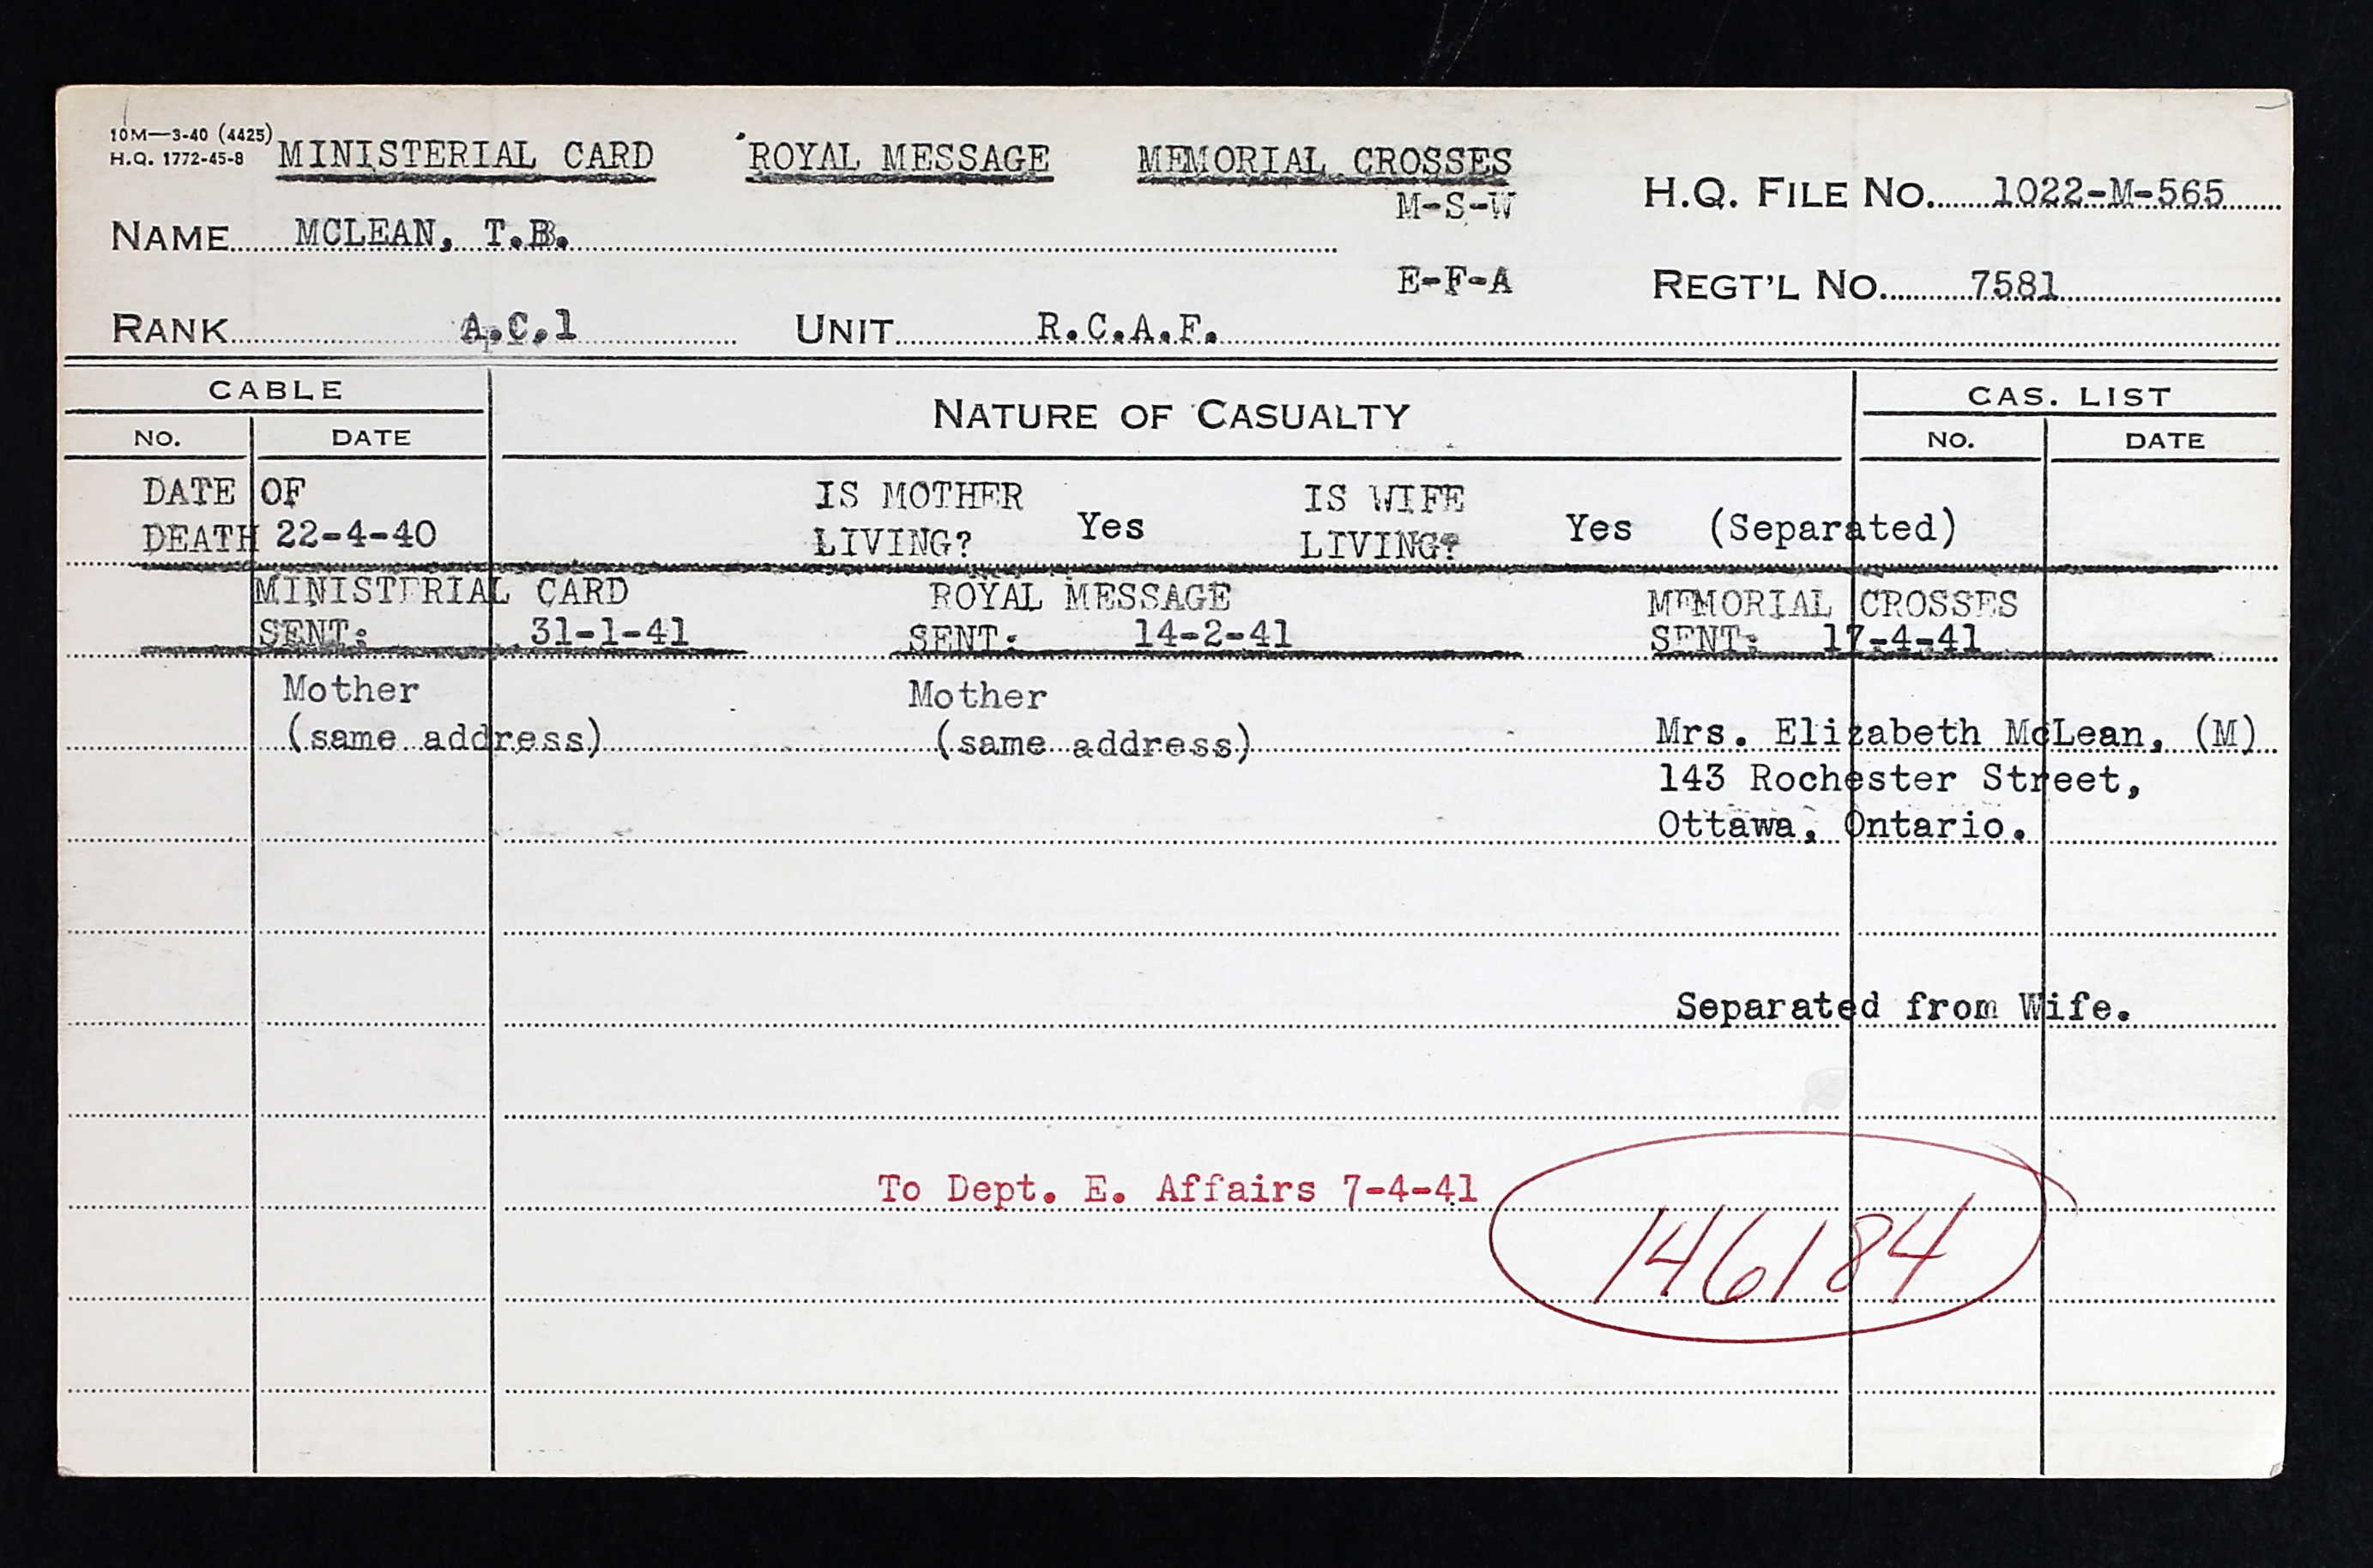 10M—3-40 (4425)
H.Q. 1772-45-8
MINISTERIAL CARD ROYAL MESSAGE MEMORIAL CROSSES
M-S-W
H.Q. FILE NO. 1022-M-565
NAME MCLEAN, T.B.
E-F-A
REGT'L NO. 7581
RANK A.C.1 UNIT R.C.A.F.
CABLE NATURE OF CASUALTY CAS. LIST
NO. DATE NO. DATE
DATE OF IS MOTHER IS WIFE
DEATH 22-4-40 LIVING? Yes LIVING? Yes (Separated)
MINISTERIAL CARD ROYAL MESSAGE MEMORIAL CROSSES
SENT: 31-1-41 SENT: 14-2-41 SENT: 17-4-41
Mother Mother
(same address) (same address) Mrs. Elizabeth McLean, (M)
143 Rochester Street,
Ottawa, Ontario.
Separated from Wife.
To Dept. E. Affairs 7-4-41
146184